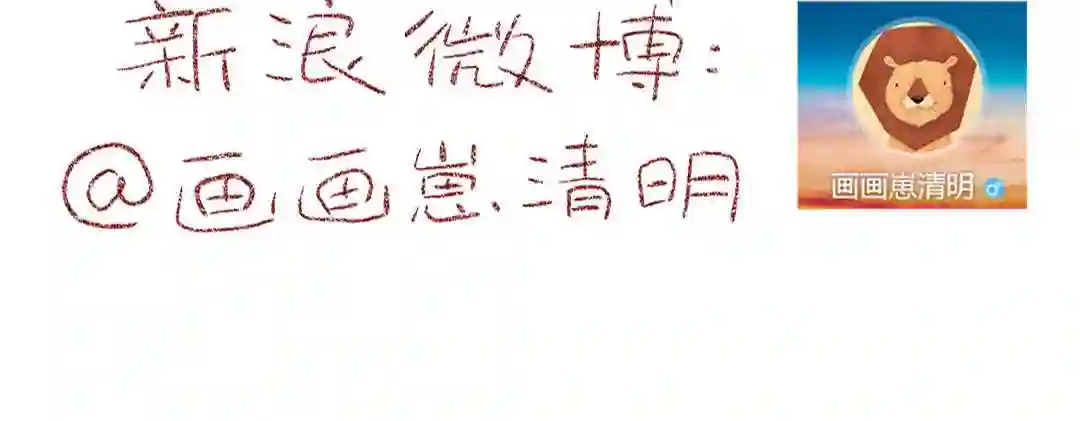 新浪微博:
@画画崽清明
画画崽清明